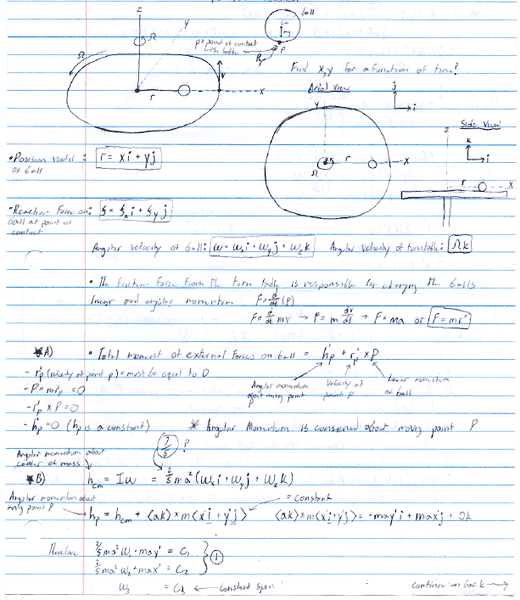 z
y
Ω
Ω
r
v
x
ball
P = point of contact
with table
P
Find x,y for a function of time?
Aerial View
y
j
i
Side View
z
k
i
Ω
r
x
r
x
• Position vector: r = xi + yj
of ball
• Reaction Force on:
ball at point of
contact
Angular velocity of ball: ω = ωₓi + ωᵧj + ω_z k Angular velocity of turntable: Ωk
• The friction force from the turn table is responsible for changing the balls
linear and angular momentum F = d/dt (P)
F = d/dt mv → F = m dv/dt → F = ma or F = mr''
A) • Total moment of external forces on ball = h'p + r'p × P
- r'p (velocity at point p) = must be equal to 0
- P = mr'p = 0
- r'p × P = 0
- h'p = 0 (hp is a constant)
Angular momentum
about moving point
P
Velocity of
point P
Linear momentum
of ball
* Angular Momentum is conserved about moving point P
Angular momentum about
center of mass
?
B) h_cm = Iω = 2/5 ma²(ωₓi + ωᵧj + ω_z k)
Angular momentum about
moving point P
= constant
hp = h_cm + (ak) × m(x'i + y'j) (ak) × m(x'i + y'j) = -may'i + max'j + 0k
Therefore
2/5 ma²ωₓ - may' = C₁
2/5 ma²ωᵧ + max' = C₂
①
ω_z = C₃ ← constant spin
continue on back →